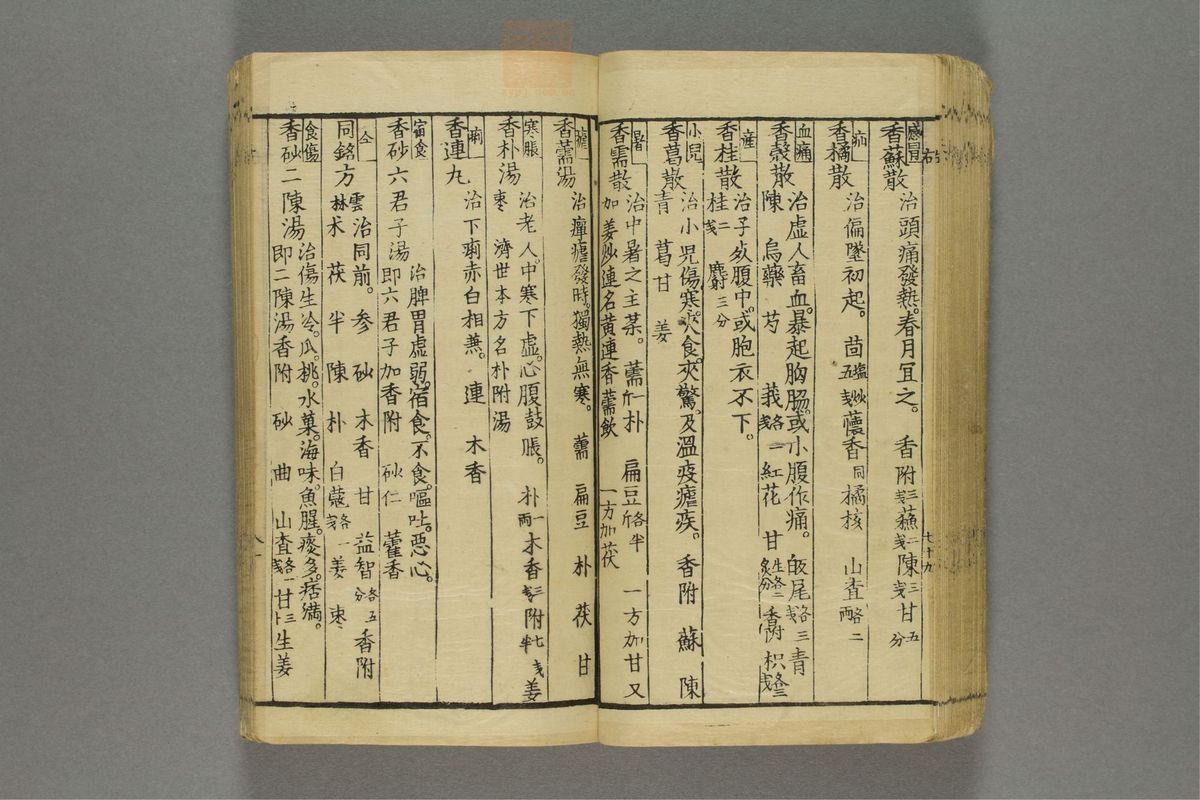 感冒 香蘇散 治頭痛發熱。春月宜之。 香附三戔 蘓二戔 陳三戔 甘五分
疝 香橘散 治偏墜初起。 茴塩炒五戔 懷香同 橘核 山査各二両
血痛 香殼散 治虛人畜血。暴起胸脇。或小腹作痛。 皈尾各三戔 青
陳 烏藥 芍 莪各一戔 紅花 甘生炙各二分 香附 枳各三戔
産 香桂散 治子死腹中。或胞衣不下。
桂二戔 麝三分
小兒 香葛散 治小兒傷寒。夾食。夾驚。及溫疫瘧疾。 香附 蘇 陳
青 葛 甘 姜
暑 香需散 治中暑之主菜。 薷一斤 朴 扁豆各半斤 一方加甘又
加姜炒連名黄連香薷飲 一方加茯
瘧 香薷湯 治癉瘧發時。獨熱無寒。 薷 扁豆 朴 茯 甘
寒脹 香朴湯 治老人。中寒下虛。心腹鼓脹。 朴一両 木香三戔 附七戔半 姜
枣 濟世本方名朴附湯
痢 香連九 治下痢赤白相兼。 連 木香
宿食 香砂六君子湯 治脾胃虛弱。宿食。不食。嘔吐。惡心。
即六君子加香附 砂仁 藿香
仝 同銘方雲林 治同前。 参 砂 木香 甘 益智各五分 香附
术 茯 半 陳 朴 白蔻各一戔 姜 枣
食傷 香砂二陳湯 治傷生冷。瓜。桃。水菓。海味。魚腥。痰多。痞滿。
即二陳湯香附 砂 曲 山査各一戔 甘三卜 生姜
七十九